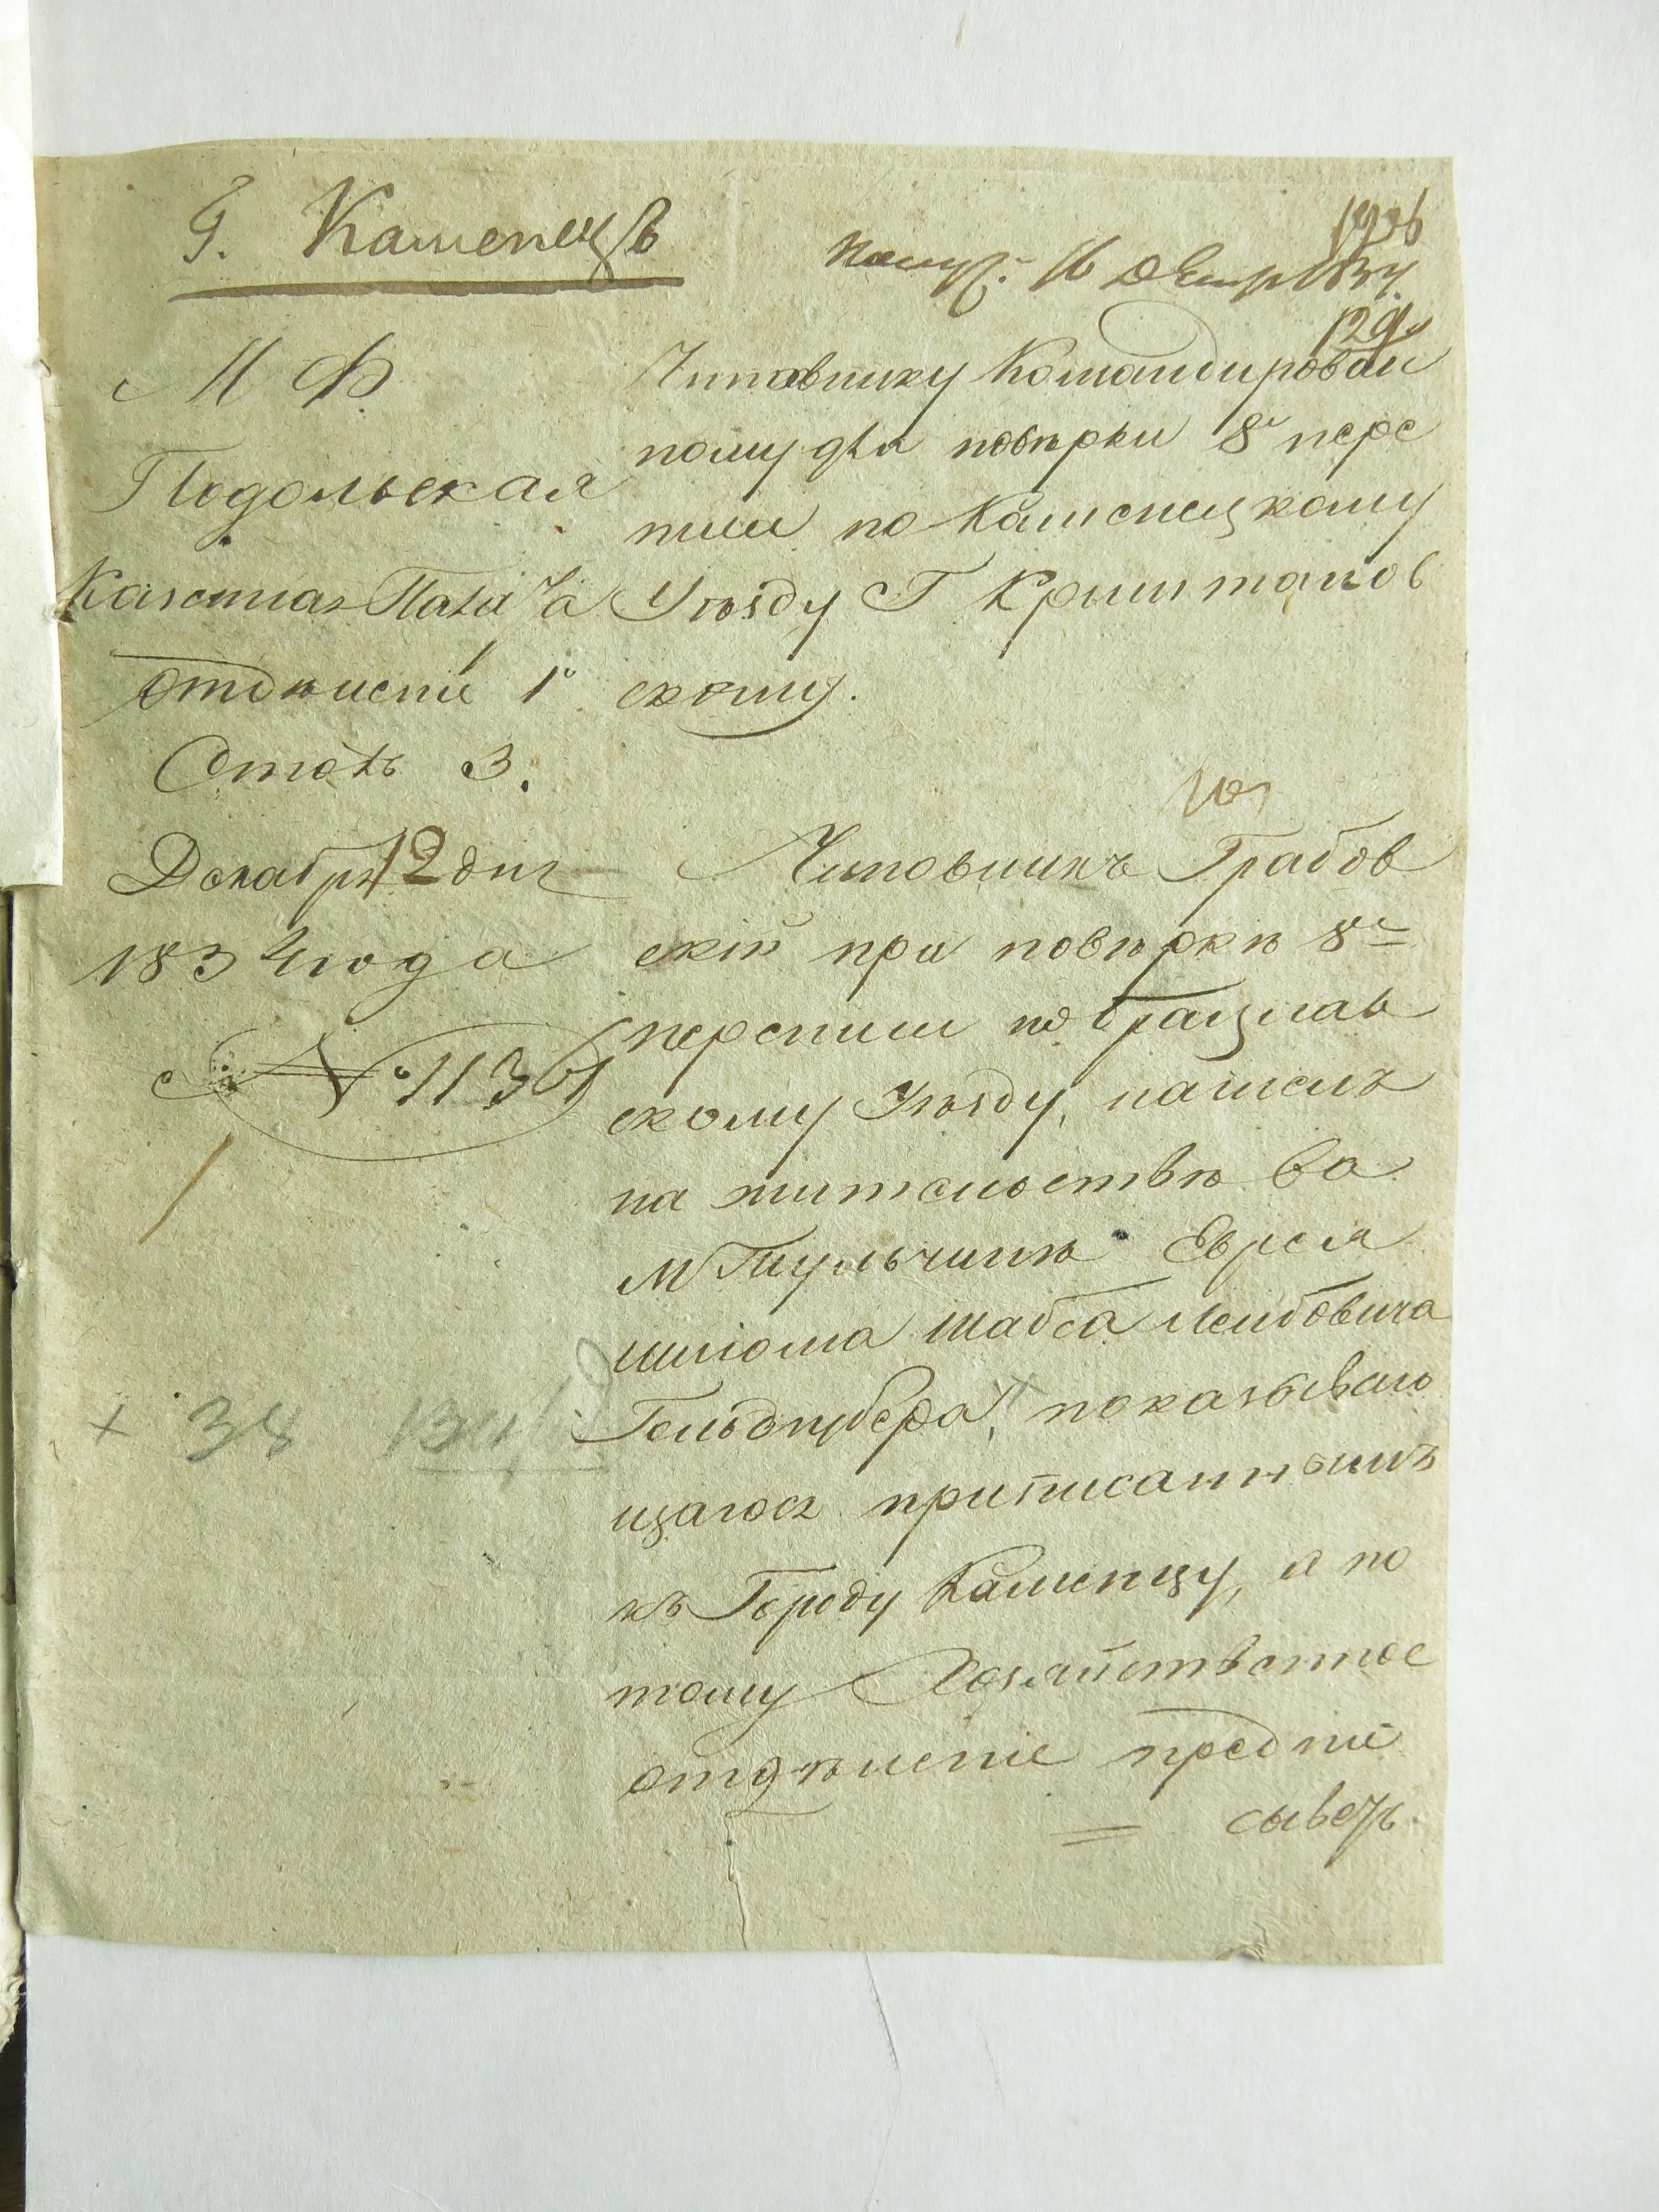 Г. Каменецъ
Получ. 16 Декабр 1834
129
М Ф
Подольская
Казенная Палата
Отдѣленіе 1е
Столъ 3.
Декабря 12 дня
1834 года
№ 1136
+ 34
Чиновнику Командирован
ному для повѣрки 8й пере
писи по Каменецкому
Уѣзду Г Криштанов
скому.
Чиновникъ Грабов
скій при повѣркѣ 8й
переписи по Брацлав
скому Уѣзду, нашелъ
на жительствѣ во
М Тульчинѣ Еврея
Шлюма Шабса Лейбовича
показываю
щагося приписаннымъ
къ Городу Каменцу, а по
тому Хозяйственное
отдѣленіе предпи
сываетъ